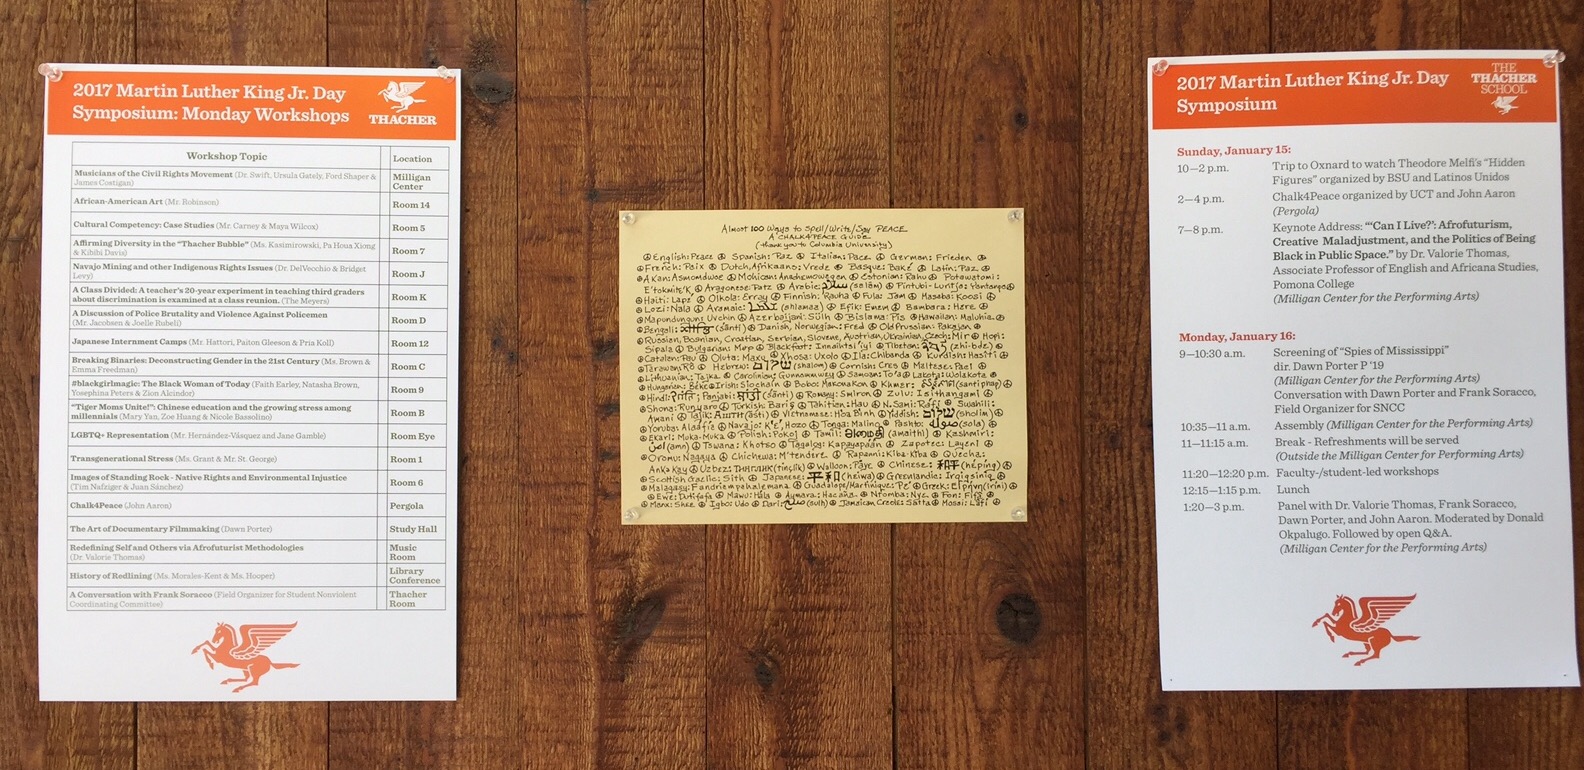 2017 Martin Luther King Jr. Day
Symposium: Monday Workshops
THACHER
Workshop Topic
Location
Musicians of the Civil Rights Movement (Dr. Swift, Ursula Gately, Ford Shaper &
James Costigan)
Milligan
Center
African-American Art (Mr. Robinson)
Room 14
Cultural Competency: Case Studies (Mr. Carney & Maya Wilcox)
Room 5
Affirming Diversity in the "Thacher Bubble" (Ms. Kasimirowski, Pa Houa Xiong
& Kibibi Davis)
Room 7
Navajo Mining and other Indigenous Rights Issues (Dr. DelVecchio & Bridget
Levy)
Room J
A Class Divided: A teacher's 20-year experiment in teaching third graders
about discrimination is examined at a class reunion. (The Meyers)
Room K
A Discussion of Police Brutality and Violence Against Policemen
(Mr. Jacobsen & Joelle Rubeli)
Room D
Japanese Internment Camps (Mr. Hattori, Paiton Gleeson & Pria Koll)
Room 12
Breaking Binaries: Deconstructing Gender in the 21st Century (Ms. Brown &
Emma Freedman)
Room C
#blackgirlmagic: The Black Woman of Today (Faith Earley, Natasha Brown,
Yosephina Peters & Zion Alcindor)
Room 9
"Tiger Moms Unite!": Chinese education and the growing stress among
millennials (Mary Yan, Zoe Huang & Nicole Bassolino)
Room B
LGBTQ+ Representation (Mr. Hernández-Vásquez and Jane Gamble)
Room Eye
Transgenerational Stress (Ms. Grant & Mr. St. George)
Room 1
Images of Standing Rock - Native Rights and Environmental Injustice
(Tim Nafziger & Juan Sánchez)
Room 6
Chalk4Peace (John Aaron)
Pergola
The Art of Documentary Filmmaking (Dawn Porter)
Study Hall
Redefining Self and Others via Afrofuturist Methodologies
(Dr. Valorie Thomas)
Music
Room
History of Redlining (Ms. Morales-Kent & Ms. Hooper)
Library
Conference
A Conversation with Frank Soracco (Field Organizer for Student Nonviolent
Coordinating Committee)
Thacher
Room
Almost 100 Ways to Spell/Write/Say PEACE
A CHALK4PEACE GUIDE
(thank you to Columbia University)
English: Peace Spanish: Paz Italian: Pace German: Frieden
French: Paix Dutch, Afrikaans: Vrede Basque: Bake Latin: Paz
Akan: Asmomdwoe Mohican: Estonian: Rahu Potawatomi:
Aragonese: Patz Arabic: (salām)
Haiti: Lapè Olkola: Erray Finnish: Rauha Fula: Jam Hasaba: Koosi
Lozi: Nala Aramaic: (shlamaa) Efik: Emem Bambara: Here
Mapundungun: Uvchin Azerbaijani: Sülh Bislama: Pis Hawaiian: Maluhia
Bengali: (sānti) Danish, Norwegian: Fred Old Prussian: Pakajan
Russian, Bosnian, Croatian, Serbian, Slovene, Austrian, Ukrainian, Czech: Mir Hopi:
Sipala Bulgarian: Mep Blackfoot: Innaihtsi'iyi Tibetan: (zhi-bde)
Catalan: Pau Oluta: Maxu Xhosa: Uxolo Ila: Chibanda Kurdish: Hasîtî
Tarawan: Hebrew: שלום (shalom) Cornish: Cres Maltese: Paci
Lithuanian: Taika Carolinian: Gunnomwuey Samoan: To'a Lakota: Wolakota
Hungarian: Béke Irish: Síochain Bobo: Makona Kon Khmer: (santiphap)
Hindi: Panjabi: (śānti) Romany: Smirom Zulu: Isithangami
Shona: Runyaro Turkish: Barış Tahitian: Hau N. Sami: Ráfi Swahili:
Amani Tajik: (āsti) Vietnamese: Hòa Bình Yiddish: שלום (sholim)
Yoruba: Alaafia Navajo: K'é, Hozo Tonga: Malino Pashto: (sola)
Ekari: Muka-Muka Polish: Pokoj Tamil: (amaithi) Kashmiri:
(amn) Tswana: Khotso Tagalog: Kapayapaan Zapotec: Layeni
Oromu: Nagaya Chichewa: M'tendere Rapanui: Kiba-Kiba Quecha:
Anka Kay Uzbez: (tinçlik) Walloon: Påye Chinese: 和平 (hépíng)
Scottish Gaelic: Sith Japanese: 平和 (heiwa) Greenlandic: Irqigsiniq
Malagasy: Fandriampahalemana Guadalope/Martinique: Pé Greek: (iríni)
Ewe: Mawu: Hila Aymara: Hacaña Ntomba: Nye Fon: Fifa
Manx: Shee Igbo: Udo Dari: صلح (sulh) Jamaican Creole: Satta Mosai: Lafi
2017 Martin Luther King Jr. Day
Symposium
THE
THACHER
SCHOOL
Sunday, January 15:
10—2 p.m. Trip to Oxnard to watch Theodore Melfi's "Hidden
Figures" organized by BSU and Latinos Unidos
2—4 p.m. Chalk4Peace organized by UCT and John Aaron
(Pergola)
7—8 p.m. Keynote Address: "'Can I Live?': Afrofuturism,
Creative Maladjustment, and the Politics of Being
Black in Public Space." by Dr. Valorie Thomas,
Associate Professor of English and Africana Studies,
Pomona College
(Milligan Center for the Performing Arts)
Monday, January 16:
9—10:30 a.m. Screening of "Spies of Mississippi"
dir. Dawn Porter P '19
(Milligan Center for the Performing Arts)
Conversation with Dawn Porter and Frank Soracco,
Field Organizer for SNCC
10:35—11 a.m. Assembly (Milligan Center for the Performing Arts)
11—11:15 a.m. Break - Refreshments will be served
(Outside the Milligan Center for Performing Arts)
11:20—12:20 p.m. Faculty-/student-led workshops
12:15—1:15 p.m. Lunch
1:20—3 p.m. Panel with Dr. Valorie Thomas, Frank Soracco,
Dawn Porter, and John Aaron. Moderated by Donald
Okpalugo. Followed by open Q&A.
(Milligan Center for the Performing Arts)